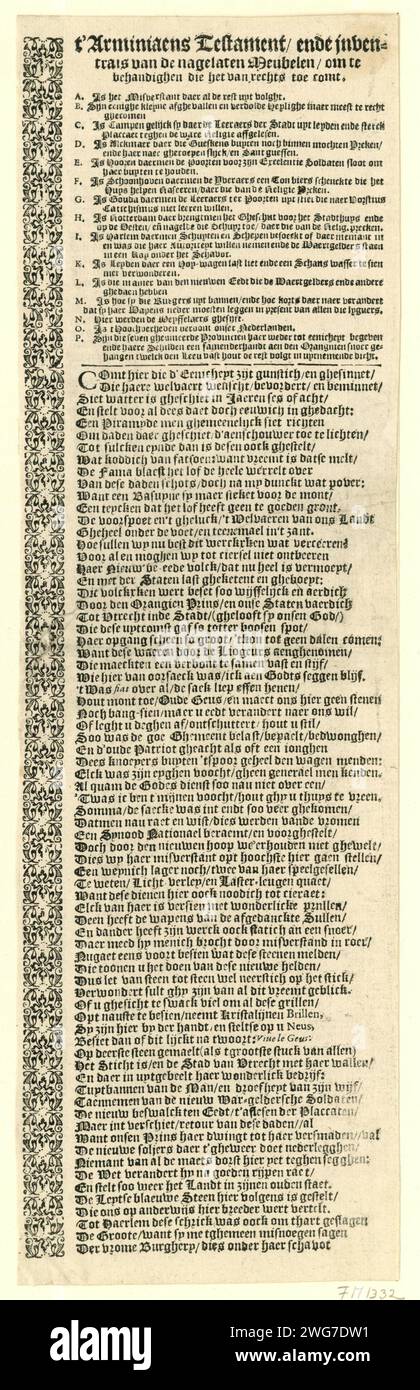 t'Arminiaens Testament/ ende inven-
taris van de nagelaten Meubelen/ om te
behandighen die het van rechts toe comt.
A. Is het Misverstant daer al de rest upt volght.
B. Sijn eenighe kleyne afghevallen en verdolde Heylighe maer meest te recht
ghecomen
C. Is Campen gelijck sy daer de Leeraers der Stadt upt leyden ende sterck
Placcaet teghen de ware Religie afflesen.
D. Is Alckmaer daer die Gueskens buyten noch binnen mochten Preken/
ende haer naer gheroepen slijck/ en Sant gueffen.
E. Is Hoorn daermen de Poorten voor zijn Excelentie Soldaten sloot om
haer buyten te houden.
F. Is Schoonhoven daermen de Yveraers een Conbiers schenckte die het
Huys helpen Raseren/ daer die van de Religie Preken.
G. Is Gouda daermen de Leeraers ter Poorten upt stiet die naer Vorstius
Catechismus niet leeren wilden.
H. Is Rotterdam daer brengtmen het Gheschut voor het Stadthuys ende
op de Vesten/ en nagelt de Schuyt toe/ daer die van de Relig. preken.
I. Is Harlem daermen Schuyten en Schepen versoeckt of daer niemant in
en was die haer Autoriteyt willen nemen ende de Waertgelders staen
in een Ray onder het Schavot.
K. Is Leyden daer een Hop-wagen last siet ende een Schans wasser te sien
met verwonderen.
L. Is die manier van den nieuwen Eedt die de Waertgelders ende andere
ghedaen hebben
M. Is hoe sy die Burgers upt bannen/ ende hoe korts daer naer verandert
dat sy haer Wapens neder moesten leggen in presentie van allen die lyguers.
N. Hier werden de Wyffelaers ghesyft.
O. Is t Hoochverheven vercont onser Nederlanden.
P. Sijn die seven gheunieerde Provintien haer weder tot eenicheyt begeven
ende haere Schilden een samenderhandt aen den Orangnien snoer ge-
hangen twelck den Leeu vast hout de rest volgt in upnemende dicht.
COmt hier die d'Eenicheyt zijt gunstich/ en ghesinnet/
Die haere welvaert wenscht/ bevordert/ en beminnet/
Siet watter is gheschiet in Jaeren ses of acht/
En stelt voor al dees daet doch eeuwich in ghedacht:
Een Piramyde men ghemeenelijck siet richten
Om daden daer gheschiet d'aenschouwer toe te lichten/
Tot sulcken eynde dan is desen oock ghestelt/
Wat koddich van fatsoen want vreemt is datse melt/
De Fama blaest het lof de heele werrelt over
Van dese daden schots/ doch na my dunckt wat pover:
Want een Basuyne sy maer steket voor de mont/
Een teycken dat het lof heeft geen te goeden gront.
De voorspoet en 't gheluck/ 't Welvaeren van ons Landt
Gheheel onder de voet/ en teenemael in't zant.
Hoe sullen wy nu best dit werckjken wat vereeren?
Voor al en moghen wy tot ciersel niet ontbeeren
Haer Nieuw be-eede volck/ dat nu heel is vermoeyt/
En met der Staten last gheketent en ghekoept:
Die volckrken wert beset soo wijsselijck en aerdich
Door den Orangien Prins/ en onse Staten vaerdich
Tot Utrecht inde Stadt/ (ghelooft sy onsen God/)
Die dese uptcomst gaf so totter boosen spot/
Haer opgang scheen so groot/ thou tot geen dalen comen:
Want dese waren door de Ligeurs aenghenomen/
Die maeckten een verbont te samen vast en styf/
Wie hier van oorsaeck was/ ick aen Godts seggen blijf.
't Was fias over al/ de saeck liep effen henen/
Hout mont toe/ Oude Geus/ en maeckt ons hier geen stenen
Noch bang-sien/ maer u eedt verandert naer ons wil/
Of leght u deghen af/ ontschuttert/ hout u stil/
Soo was de goe Ghemeent belast/ bepaelt/ bedwonghen/
En d'oude Patriot gheacht als oft een jonghen
Dees knoepers buyten 't spoor geheel den wagen menden:
Elck was zijn eyghen voocht/ gheen generael men kenden.
Al quam de Godes dienst soo nau niet over een/
'Twas ic ben t mijnen voocht/ hout ghy u thuys te vreen.
Somma/ de saecke was int endt soo veer ghekomen/
Datmen nau raet en wist/ dies werden vande vromen
Een Synood Nationael beraemt/ en voorghestelt/
Doch door den nieuwen hoop weerhouden niet ghewelt/
Dies wy haer misverstant opt hoochste hier gaen stellen/
Een weynich lager noch/ twee van haer speelgesellen/
Te weten/ Licht verley/ en Laster-leugen quaet/
Want dese dienen hier oock noodich tot cieraet:
Elck van haer is versien met wonderlicke grillen/
Deen heeft de wapens van de afgedanckte Sullen/
En dander heeft zijn werck oock statich aen een snoer/
Daer meed hy menich brocht door misverstand in roer/
Nu gaet eens voort besien wat dese steenen melden/
Die toonen u het doen van dese nieuwe helden/
Dus let van steen tot steen wel neerstich op het stick/
Verwondert sult ghy zijn van al dit vreemt geblick.
Of u ghesicht te swack viel om al dese grillen/
Opt nauste te besien/ neemt Kristalijnen Brillen,
Sy zijn hier by der handt/ en steltse op u Neus,
Besiet dan of dit lijckt na twoort: Vive le Geus.
Op deerste steen gemaelt (als t grootste stuck van allen)
Het Sticht is/ en de Stad van Utrecht met haer wallen/
En daer in uptgebeelt haer wonderlick bedrijf:
Tuptbannen van de Man/ en droefheyt van zijn wijf/
Taennemen van de nieuw War-geldersche Soldaten/
De nieuw beswalckten Eedt/ t'aflesen der Placcaten/
Maer int verschiet/ retour van dese daden//al
Want onsen Prins haer dwingt tot haer versmaden//val
De nieuwe soljers daer t'gheweer doet nederlegghen/
Niemant van al de maets dorst hier yet teghen segghen:
De Wet verandert hy na goeden rijpen raet/
En stelt soo weer het Landt in zijnen ouden staet.
De Leytse blaeuwe Steen hier volgens is gestelt/
Die ons op anderwijs hier breeder wert vertelt.
Tot Haerlem dese schrick was oock om thart geslagen
De Groote/ want sy me tghemeen misnoegen sagen
Der vrome Burghery/ dies onder haer schavot
F M 1332